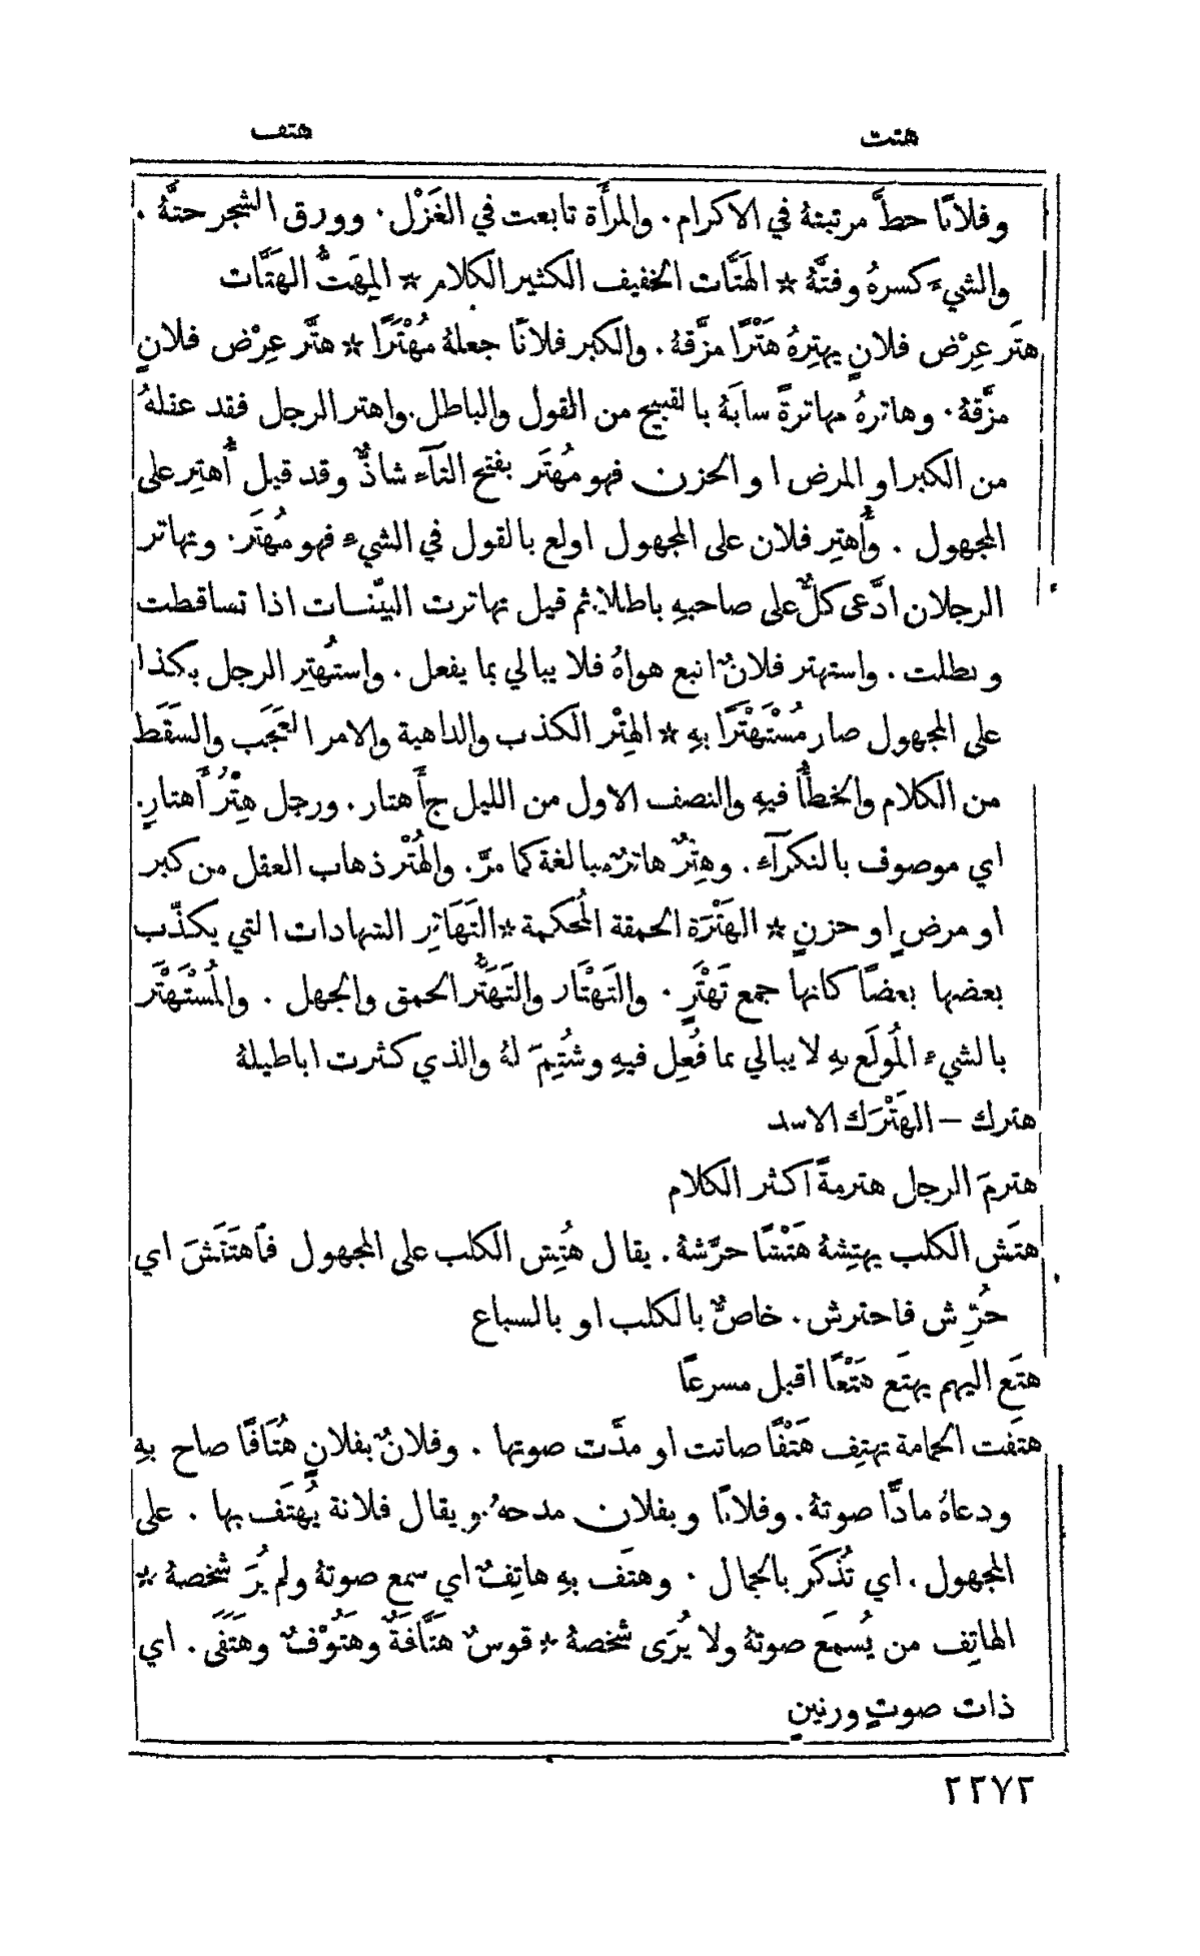 هتت
هتف
وفلانًا حطَّ مرتبتهُ في الاكرام. والمرأَة تابعت في الغَزْل. وورق الشجر حتَّهُ.
والشيءَ كسرهُ وفتَّهُ * الهَتَّات الخفيف الكثير الكلام * المِهَتُّ الهَتَّات
هتَر عِرْض فلانٍ يهتِرهُ هَتْرًا مزَّقهُ. والكبر فلانًا جعلهُ مُهْتَرًا * هتَّر عِرْض فلانٍ
مزَّقهُ. وهاترهُ مهاترةً سابَهُ بالقبيح من القول والباطل. واهتر الرجل فقد عقلهُ
من الكبر او المرض او الحزن فهو مُهتَر بفتح التآء شاذٌّ وقد قيل أُهتِر على
المجهول. وأُهتِر فلان على المجهول اولع بالقول في الشيءِ فهو مُهتَر. وتهاتر
الرجلان ادَّعى كلٌّ على صاحبهِ باطلاً ثم قيل تهاترت البيّنات اذا تساقطت
وبطلت. واستهتر فلانٌ اتبع هواهُ فلا يبالي بما يفعل. واستُهتِر الرجل بكذا
على المجهول صار مُسْتَهْتَرًا بهِ * الهِتْر الكذب والداهية والامر العَجَب والسَقَط
من الكلام والخطأُ فيهِ والنصف الاول من الليل ج أَهتار. ورجل هِتْرُ أَهتارٍ.
اي موصوف بالنكرآء. وهِترٌ هاترٌ مبالغة كما مرَّ. والهُتْر ذهاب العقل من كبر
او مرضٍ او حزنٍ * الهَتْرَة الحمقة المُحكمة * التَهَاتِر الشهادات التي يكذّب
بعضها بعضًا كانها جمع تَهْتَرٍ. والتَهْتَار والتَهَتُّر الحمق والجهل. والمُسْتَهْتَر
بالشيءِ المُولَع بهِ لا يبالي بما فُعِل فيهِ وشُتِمَ لهُ والذي كثرت اباطيلهُ
هترك – الهَتْرَك الاسد
هترمَ الرجل هترمةً اكثر الكلام
هتَش الكلب يهتِشهُ هَتْشًا حرَّشهُ. يقال هُتِش الكلب على المجهول فٱهتَتَشَ اي
حُرِّش فاحترش. خاصٌّ بالكلب او بالسباع
هتَع اليهم يهتَع هَتْعًا اقبل مسرعًا
هتَفت الحمامة تهتِف هَتْفًا صاتت او مدَّت صوتها. وفلانٌ بفلانٍ هُتَافًا صاح بهِ
ودعاهُ مادًّا صوتهُ. وفلانًا وبفلان مدحهُ. ويقال فلانة يُهتَف بها. على
المجهول. اي تُذكَر بالجمال. وهتَف بهِ هاتِفٌ اي سمع صوتهُ ولم يُرَ شخصهُ *
الهاتِف من يُسمَع صوتهُ ولا يُرَى شخصهُ * قوسٌ هَتَّافَةٌ وهَتُوْفٌ وهَتَفَى. اي
ذات صوتٍ ورنينٍ
٢٢٧٢